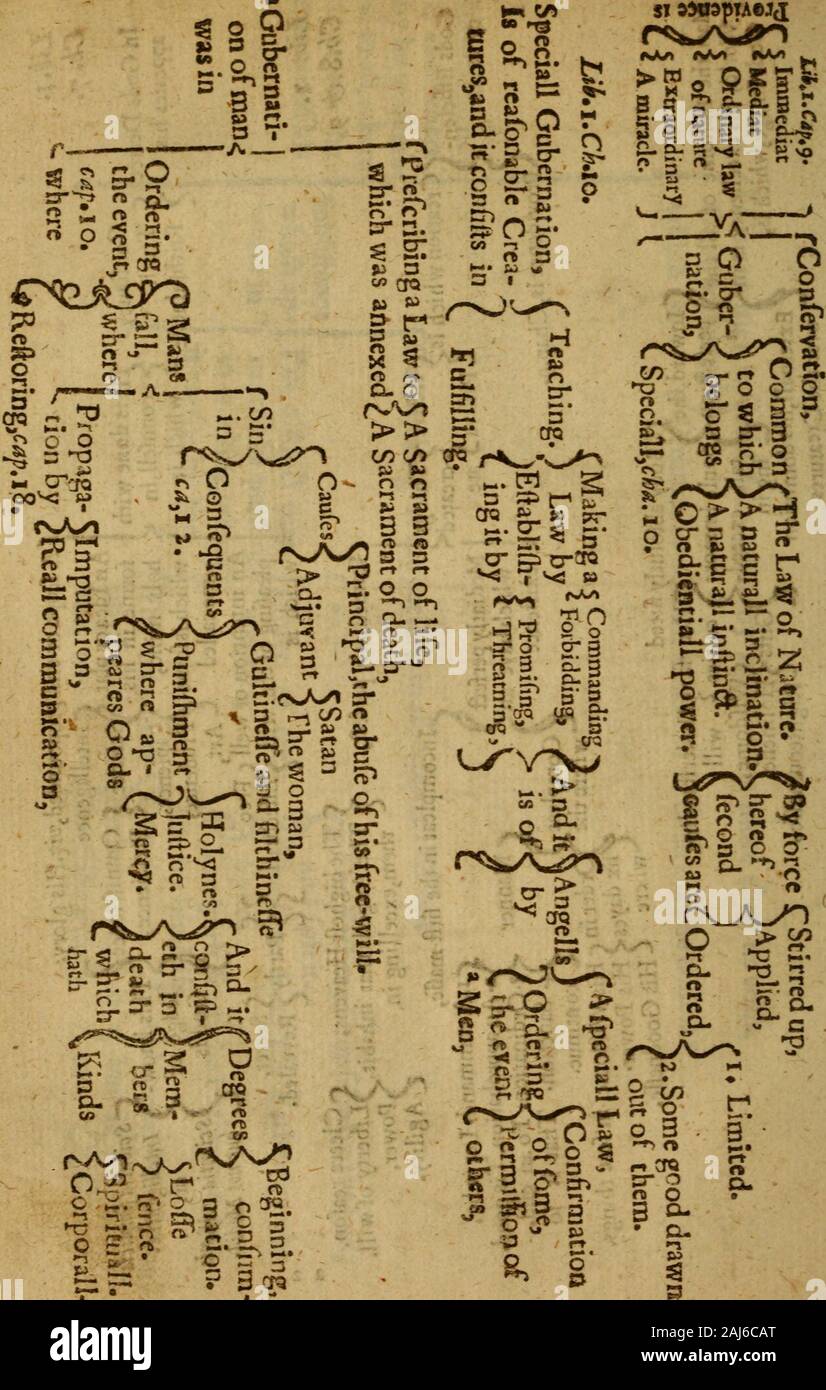 Lib.1.Cap.9.
Providence is
Immediat
Mediat
Ordinary law
of nature
Extraordinary
A miracle.
Conservation,
Guber-
nation,
Common
to which
belongs
Speciall, cha. 10.
The Law of Nature.
A naturall inclination.
A naturall instinct.
Obedientiall power.
By force
hereof
second
causes are
Stirred up,
Applied,
Ordered,
1. Limited.
2. Some good drawn
out of them.
Lib.1.Ch.10.
Speciall Gubernation,
Is of reasonable Crea-
tures, and it consists in
Teaching.
Fulfilling.
Making a
Law by
Establish-
ing it by
Commanding
Forbidding,
Promising,
Threatning,
And it
is of
by
Angells
Men,
A speciall Law,
Ordering
the event
Confirmation
of some,
Permission of
others,
Gubernati-
on of man
was in
Prescribing a Law to
which was annexed
A Sacrament of life,
A Sacrament of death,
Ordering
the event,
cap.10.
where
Mans
fall,
where
Restoring, cap.18.
Sin
in
Propaga-
tion by
Causes
Consequents
ca,12.
Principal, the abuse of his free-will.
Adjuvant
Satan
The woman,
Guiltinesse and filthinesse
Punishment
where ap-
peares Gods
Holynes.
Justice.
Mercy.
And it
consist-
eth in
death
which
hath
Degrees
Mem-
bers
Kinds
Beginning,
consum-
mation.
Losse
sence.
Spirituall.
Corporall.
Imputation,
Reall communication,
alamy
Image ID: 2AJ6CAT
www.alamy.com